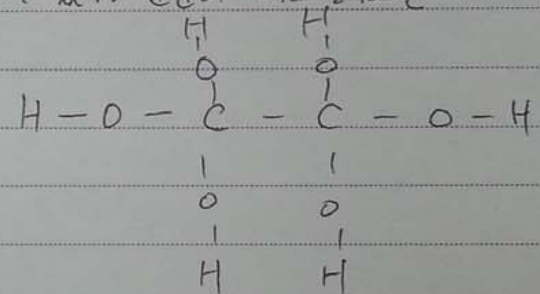 H H
O O
H - O - C - C - O - H
O O
H H